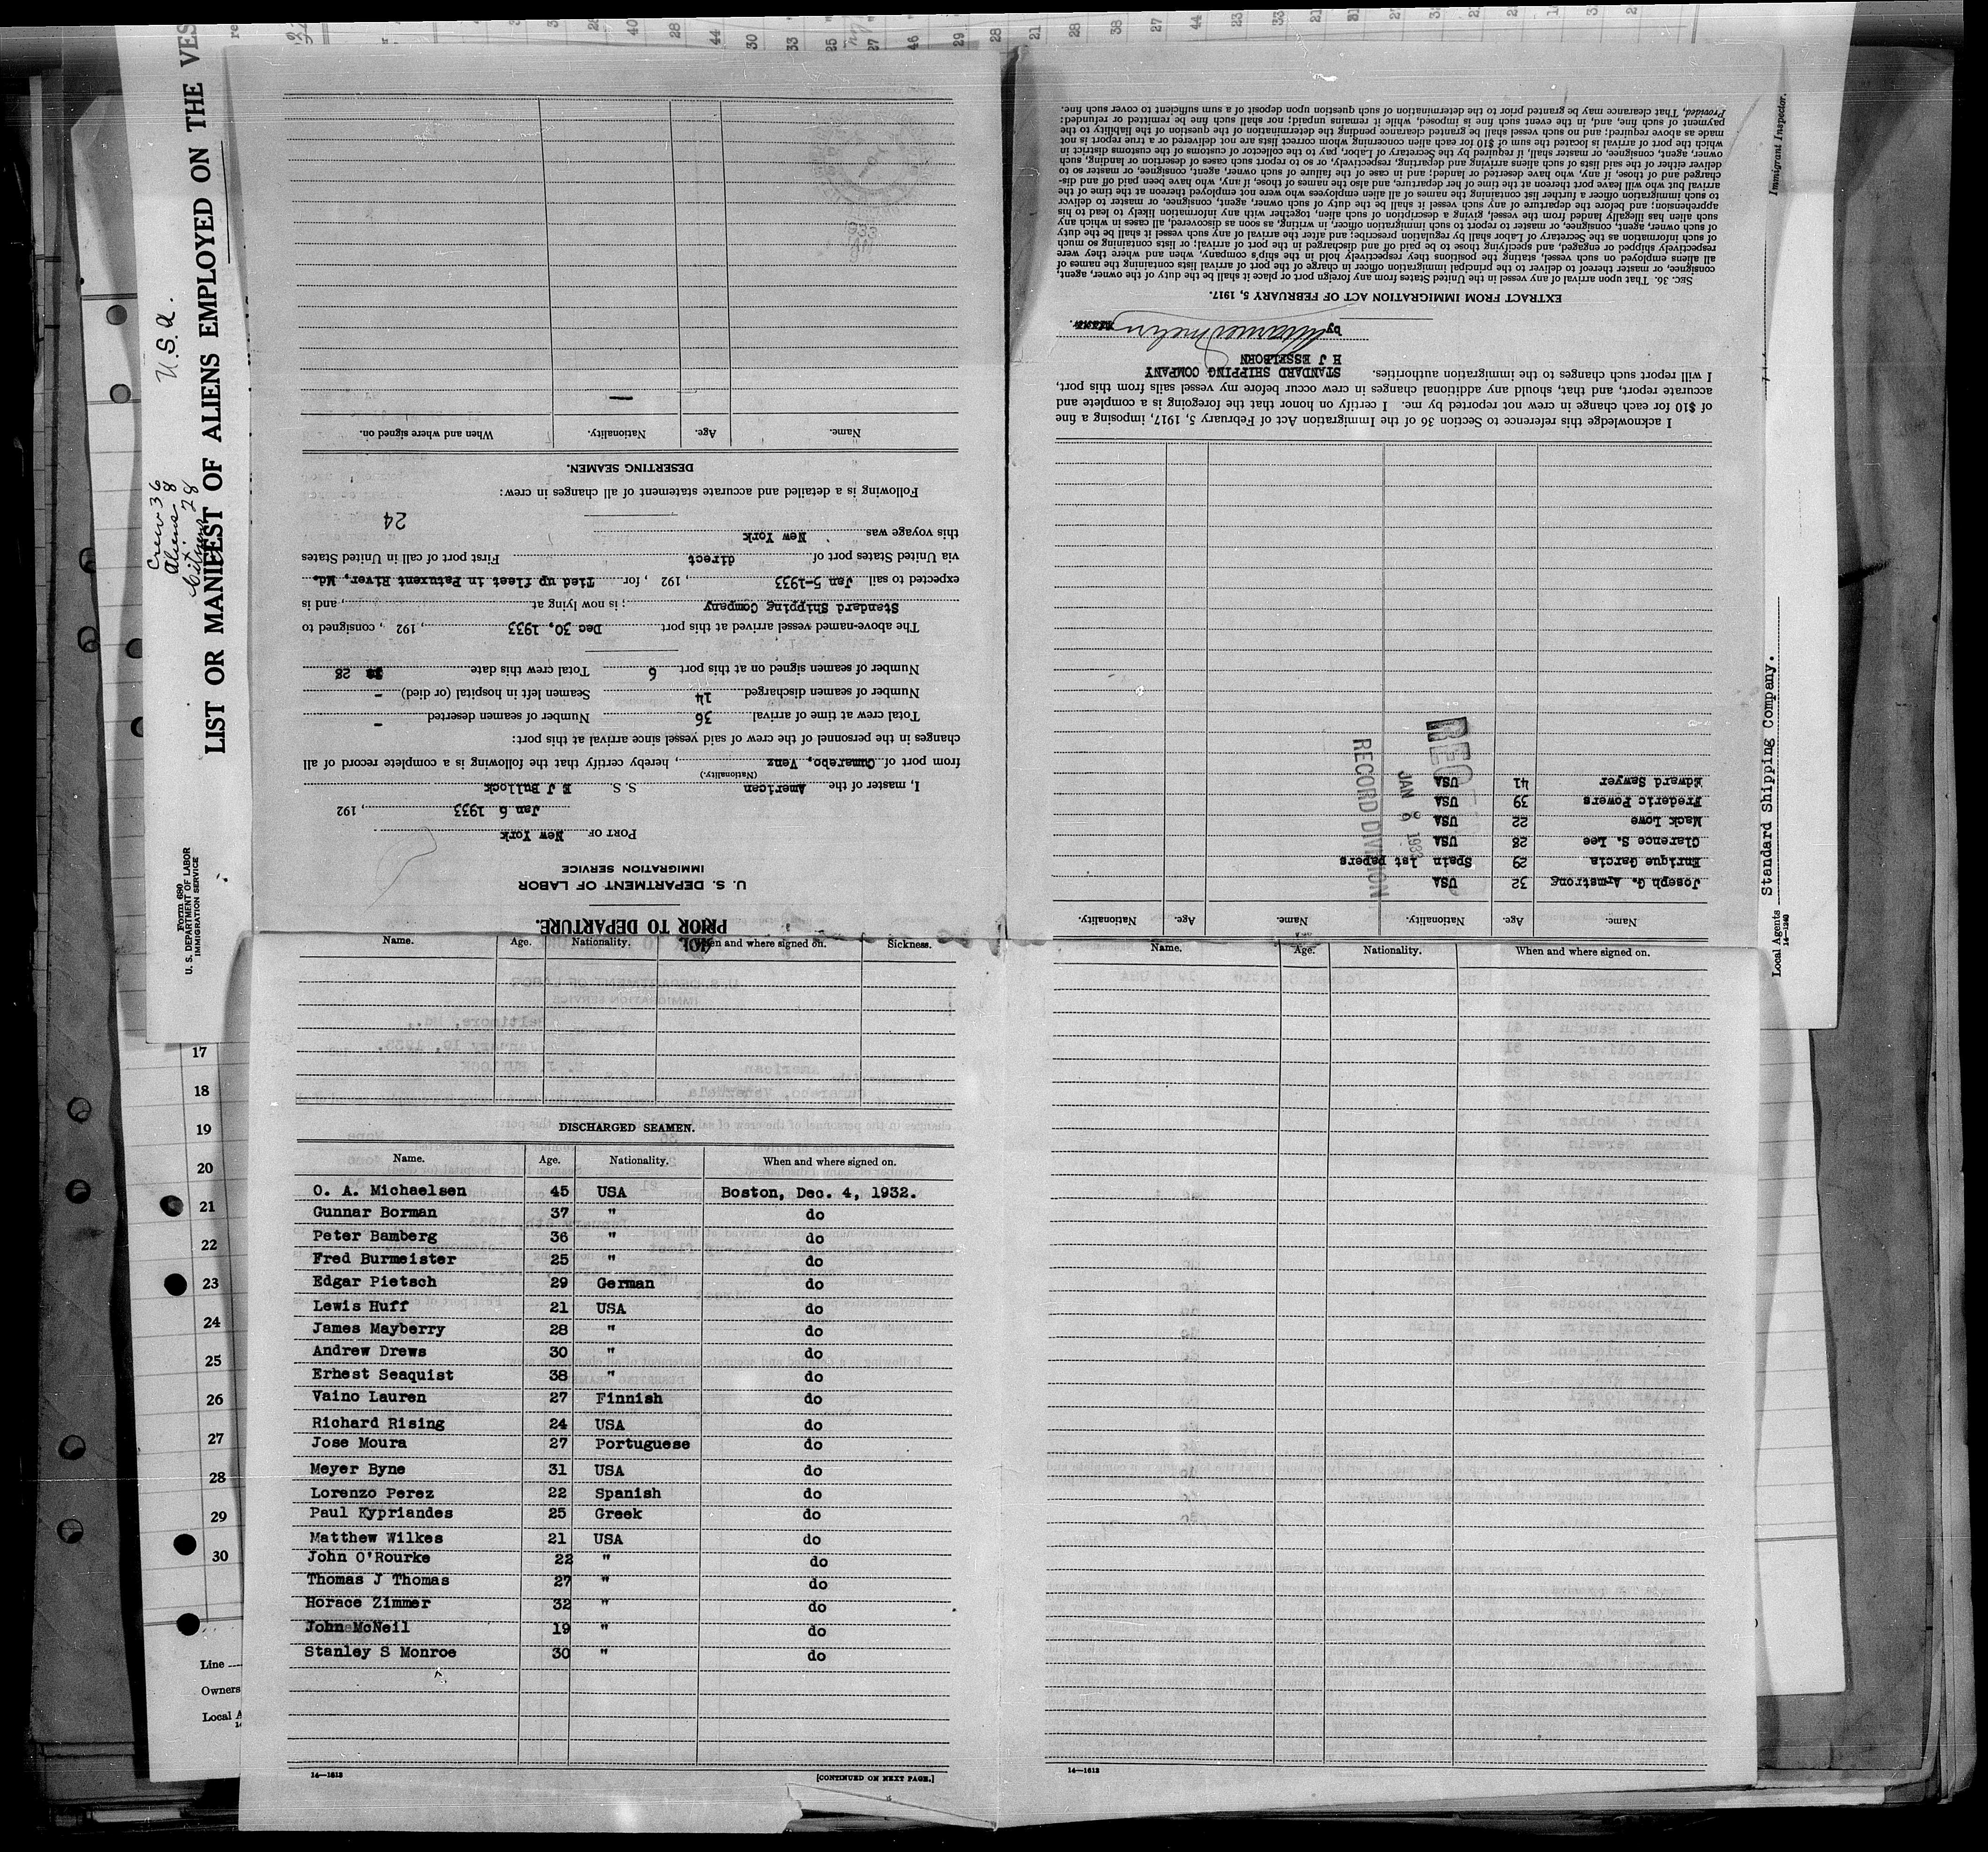 LIST OR MANIFEST OF ALIENS EMPLOYED ON THE VES
U.S.A.
Crew 36
Aliens 8
Citizens 28
Form 680
U. S. DEPARTMENT OF LABOR
IMMIGRATION SERVICE
PRIOR TO DEPARTURE.
U. S. DEPARTMENT OF LABOR
IMMIGRATION SERVICE
PORT OF New York
Jan 6 1933, 192
I, master of the American S. S. E J Bullock
(Nationality.)
from port of Cumarebo, Venz, hereby certify that the following is a complete record of all
changes in the personnel of the crew of said vessel since arrival at this port:
Total crew at time of arrival 36 Number of seamen deserted -
Number of seamen discharged 14 Seamen left in hospital (or died) -
Number of seamen signed on at this port 6 Total crew this date 28
The above-named vessel arrived at this port Dec 30, 1933, 192 , consigned to
Standard Shipping Company; is now lying at , and is
expected to sail Jan 5-1933, 192 , for Tied up fleet in Patuxent River, Md.
via United States port of direct First port of call in United States
this voyage was New York
24
Following is a detailed and accurate statement of all changes in crew:
DESERTING SEAMEN.
Name. Age. Nationality. When and where signed on.
—
Name. Age. Nationality. Name. Age. Nationality.
Joseph G. Armstrong 32 USA
Enrique Garcia 29 Spain 1st papers
Clarence S. Lee 28 USA
Mack Lowe 22 USA
Frederic Powers 39 USA
Edward Sawyer 41 USA
JAN 6 193
RECORD DIVISION
I acknowledge this reference to Section 36 of the Immigration Act of February 5, 1917, imposing a fine
of $10 for each change in crew not reported by me. I certify on honor that the foregoing is a complete and
accurate report, and that, should any additional changes in crew occur before my vessel sails from this port,
I will report such changes to the immigration authorities.
STANDARD SHIPPING COMPANY
H J ESSELBORN
by
EXTRACT FROM IMMIGRATION ACT OF FEBRUARY 5, 1917.
SEC. 36. That upon arrival of any vessel in the United States from any foreign port or place it shall be the duty of the owner, agent,
consignee, or master thereof to deliver to the principal immigration officer in charge of the port of arrival lists containing the names of
all aliens employed on such vessel, stating the positions they respectively hold in the ship's company, when and where they were
respectively shipped or engaged, and specifying those to be paid off and discharged in the port of arrival; or lists containing so much
of such information as the Secretary of Labor shall by regulation prescribe; and after the arrival of any such vessel it shall be the duty
of such owner, agent, consignee, or master to report to such immigration officer, in writing, as soon as discovered, all cases in which any
such alien has illegally landed from the vessel, giving a description of such alien, together with any information likely to lead to his
apprehension; and before the departure of any such vessel it shall be the duty of such owner, agent, consignee, or master to deliver
to such immigration officer a further list containing the names of all alien employees who were not employed thereon at the time of the
arrival but who will leave port thereon at the time of her departure, and also the names of those, if any, who have been paid off and dis-
charged and of those, if any, who have deserted or landed; and in case of the failure of such owner, agent, consignee, or master so to
deliver either of the said lists of such aliens arriving and departing, respectively, or so to report such cases of desertion or landing, such
owner, agent, consignee, or master shall, if required by the Secretary of Labor, pay to the collector of customs of the customs district in
which the port of arrival is located the sum of $10 for each alien concerning whom correct lists are not delivered or a true report is not
made as above required; and no such vessel shall be granted clearance pending the determination of the question of the liability to the
payment of such fine, and, in the event such fine is imposed, while it remains unpaid; nor shall such fine be remitted or refunded:
Provided, That clearance may be granted prior to the determination of such question upon deposit of a sum sufficient to cover such fine.
Immigrant Inspector.
Local Agents Standard Shipping Company.
14—1240
Name. Age. Nationality. When and where signed on. Sickness.
DISCHARGED SEAMEN.
Name. Age. Nationality. When and where signed on.
O. A. Michaelsen 45 USA Boston, Dec. 4, 1932.
Gunnar Borman 37 " do
Peter Bamberg 36 " do
Fred Burmeister 25 " do
Edgar Pietsch 29 German do
Lewis Huff 21 USA do
James Mayberry 28 " do
Andrew Drews 30 " do
Erhest Seaquist 38 " do
Vaino Lauren 27 Finnish do
Richard Rising 24 USA do
Jose Moura 27 Portuguese do
Meyer Byne 31 USA do
Lorenzo Perez 22 Spanish do
Paul Kypriandes 25 Greek do
Matthew Wilkes 21 USA do
John O'Rourke 22 " do
Thomas J Thomas 27 " do
Horace Zimmer 32 " do
John McNeil 19 " do
Stanley S Monroe 30 " do
14—1613
[CONTINUED ON NEXT PAGE.]
Name. Age. Nationality. When and where signed on.
14—1613
17
18
19
20
21
22
23
24
25
26
27
28
29
30
Line
Owners
Local A